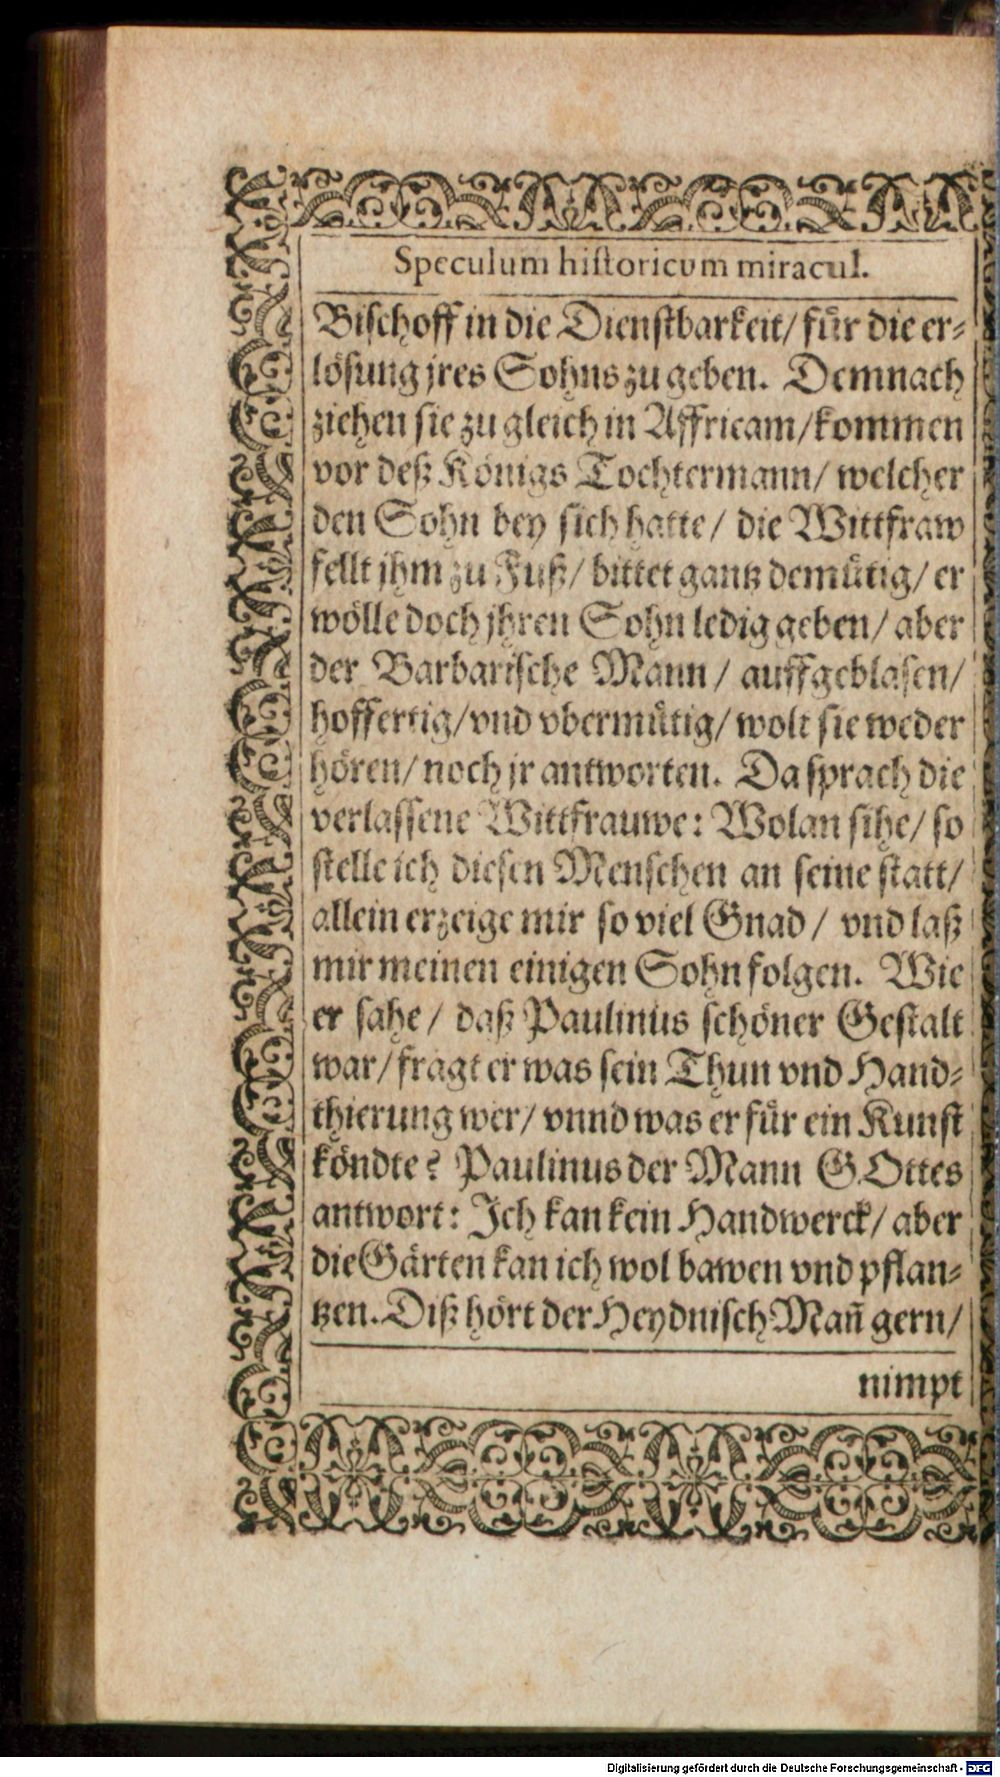 Speculum historicum miracul.
Bischoff in die Dienstbarkeit/ für die er-
lösung jres Sohns zu geben. Demnach
ziehen sie zu gleich in Affricam/ kommen
vor deß Königs Tochtermann/ welcher
den Sohn bey sich hatte/ die Wittfraw
fellt jhm zu Fuß/ bittet gantz demütig/ er
wölle doch jhren Sohn ledig geben/ aber
der Barbarische Mann/ auffgeblasen/
hoffertig/ vnd vbermütig/ wolt sie weder
hören/ noch jr antworten. Da sprach die
verlassene Wittfrauwe: Wolan sihe/ so
stelle ich diesen Menschen an seine statt/
allein erzeige mir so viel Gnad/ vnd laß
mir meinen einigen Sohn folgen. Wie
er sahe/ daß Paulinus schöner Gestalt
war/ fragt er was sein Thun vnd Hand-
thierung wer/ vnnd was er für ein Kunst
köndte? Paulinus der Mann GOttes
antwort: Ich kan kein Handwerck/ aber
die Gärten kan ich wol bawen vnd pflan-
tzen. Diß hört der Heydnisch Mañ gern/
nimpt
Digitalisierung gefördert durch die Deutsche Forschungsgemeinschaft - DFG